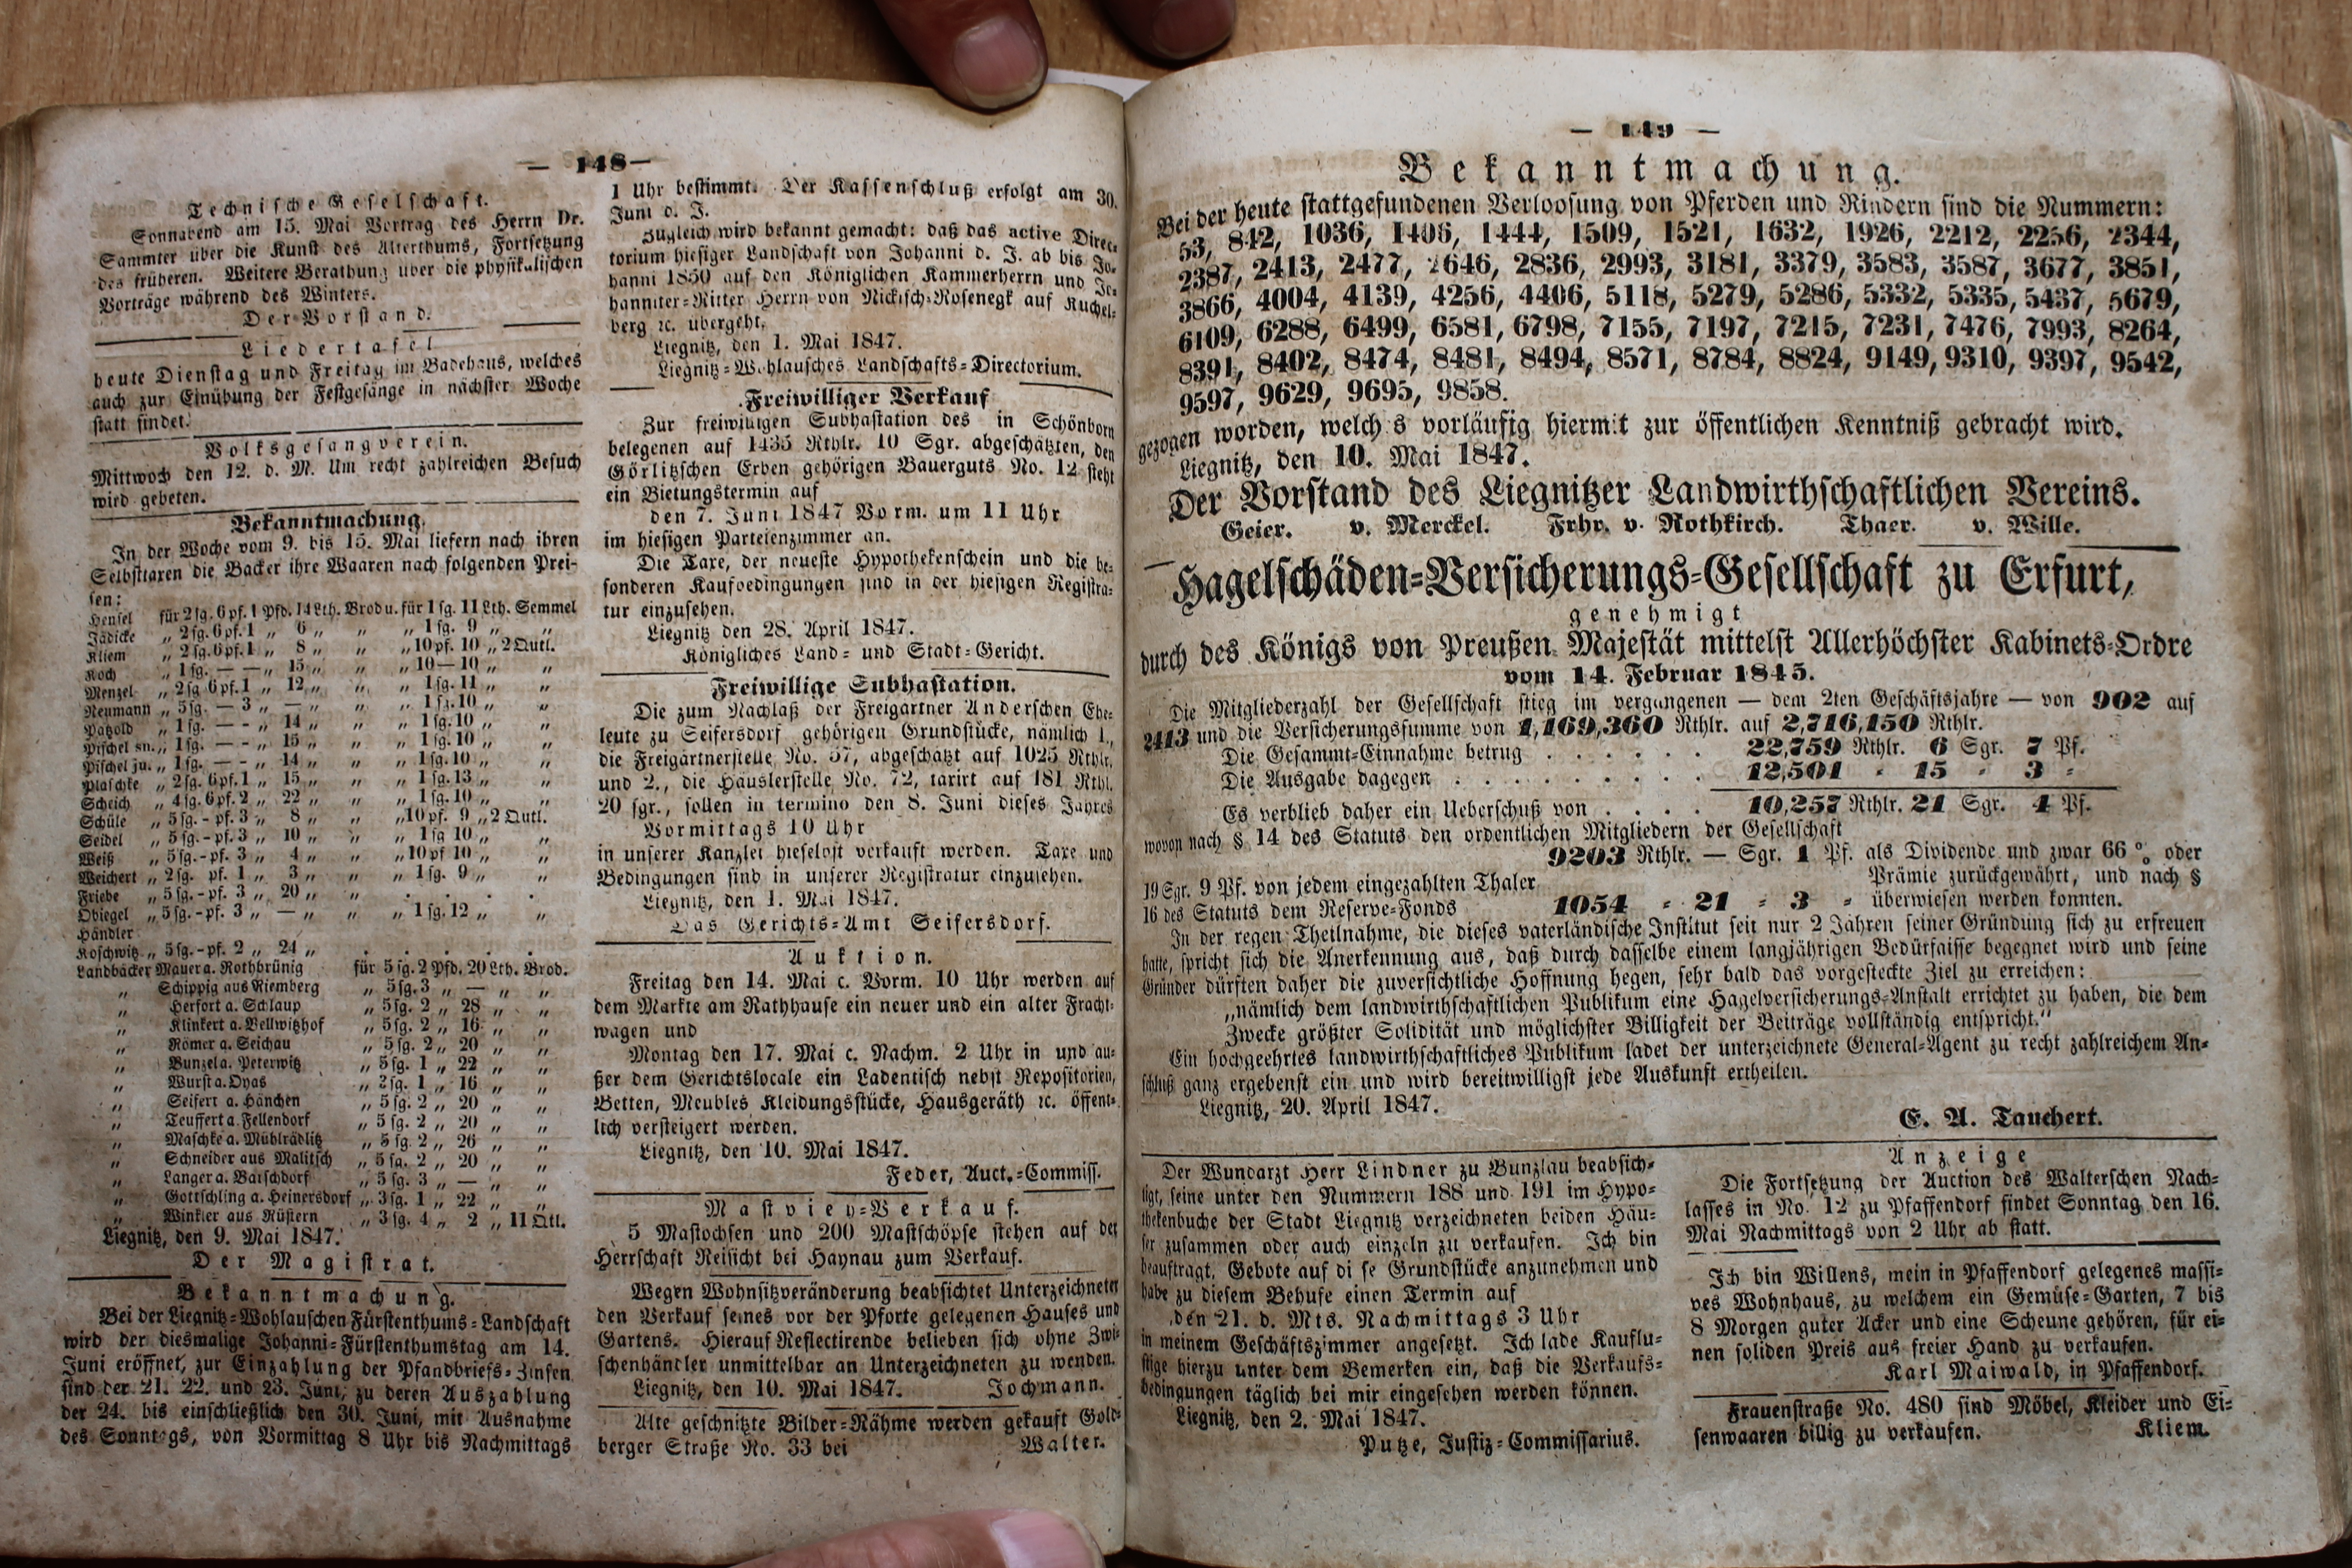 — 148 —
Technische Gesellschaft.
Sonnabend am 15. Mai Vortrag des Herrn Dr.
Sammter über die Kunst des Alterthums, Fortsetzung
des früheren. Weitere Berathung über die physikalischen
Vorträge während des Winters.
Der Vorstand.
Liedertafel
heute Dienstag und Freitag im Badehaus, welches
auch zur Einübung der Festgesänge in nächster Woche
statt findet.
Volksgesangverein.
Mittwoch den 12. d. M. Um recht zahlreichen Besuch
wird gebeten.
Bekanntmachung.
In der Woche vom 9. bis 15. Mai liefern nach ihren
Selbsttaxen die Bäcker ihre Waaren nach folgenden Prei-
sen:
Hensel für 2 sg. 6 pf. 1 Pfd. 14 Lth. Brod u. für 1 sg. 11 Lth. Semmel
Jädicke „ 2 sg. 6 pf. 1 „ 6 „ „ „ 1 sg. 9 „ „
Kliem „ 2 sg. 6 pf. 1 „ 8 „ „ „ 10 pf. 10 „ 2 Qutl.
Koch „ 1 sg. — — „ 15 „ „ „ 10 — 10 „ „
Menzel „ 2 sg 6 pf. 1 „ 12 „ „ „ 1 sg. 11 „ „
Neumann „ 5 sg. — 3 „ — „ „ „ 1 sg. 10 „ „
Pätzold „ 1 sg. — - „ 14 „ „ „ 1 sg. 10 „ „
Pischel sn. „ 1 sg. — - „ 15 „ „ „ 1 sg. 10 „ „
Pischel ju. „ 1 sg. — - „ 14 „ „ „ 1 sg. 10 „ „
Plaschke „ 2 sg. 6 pf. 1 „ 15 „ „ „ 1 sg. 13 „ „
Scheich „ 4 sg. 6 pf. 2 „ 22 „ „ „ 1 sg. 10 „ „
Schüle „ 5 sg. - pf. 3 „ 8 „ „ „ 10 pf. 9 „ 2 Qutl.
Seidel „ 5 sg. - pf. 3 „ 10 „ „ „ 1 sg 10 „ „
Weiß „ 5 sg. - pf. 3 „ 4 „ „ „ 10 pf 10 „ „
Weichert „ 2 sg. pf. 1 „ 3 „ „ „ 1 sg. 9 „ „
Friebe „ 5 sg. - pf. 3 „ 20 „ „ . . .
Obiegel „ 5 sg. - pf. 3 „ — „ „ „ 1 sg. 12 „ „
Händler
Koschwitz „ 5 sg. - pf. 2 „ 24 „ . . . .
Landbäcker Mauer a. Rothbrünig für 5 sg. 2 Pfd. 20 Lth. Brod.
„ Schippig aus Riemberg „ 5 sg. 3 „ — „ „
„ Herfort a. Schlaup „ 5 sg. 2 „ 28 „ „
„ Klinkert a. Bellwitzhof „ 5 sg. 2 „ 16 „ „
„ Römer a. Seichau „ 5 sg. 2 „ 20 „ „
„ Bunzel a. Peterwitz „ 5 sg. 1 „ 22 „ „
„ Wurst a. Dyas „ 2 sg. 1 „ 16 „ „
„ Seifert a. Hänchen „ 5 sg. 2 „ 20 „ „
„ Teuffert a. Fellendorf „ 5 sg. 2 „ 20 „ „
„ Maschke a. Mühlrädlitz „ 5 sg. 2 „ 26 „ „
„ Schneider aus Malitsch „ 5 sg. 2 „ 20 „ „
„ Langer a. Baischdorf „ 5 sg. 3 „ — „ „
„ Gottschling a. Heinersdorf „ 3 sg. 1 „ 22 „ „
„ Winkler aus Rüstern „ 3 sg. 4 „ 2 „ 11 Qtl.
Liegnitz, den 9. Mai 1847.
Der Magistrat.
Bekanntmachung.
Bei der Liegnitz=Wohlauschen Fürstenthums=Landschaft
wird der diesmalige Johanni=Fürstenthumstag am 14.
Juni eröffnet, zur Einzahlung der Pfandbriefs=Zinsen
sind der 21. 22. und 23. Juni, zu deren Auszahlung
der 24. bis einschließlich den 30. Juni, mit Ausnahme
des Sonntags, von Vormittag 8 Uhr bis Nachmittags
1 Uhr bestimmt. Der Kassenschluß erfolgt am 30.
Juni d. J.
Zugleich wird bekannt gemacht: daß das active Direc=
torium hiesiger Landschaft von Johanni d. J. ab bis Jo=
hanni 1850 auf den Königlichen Kammerherrn und Jo=
hanniter=Ritter Herrn von Nickisch=Rosenegk auf Kuchel=
berg ꝛc. übergeht.
Liegnitz, den 1. Mai 1847.
Liegnitz=Wohlausches Landschafts=Directorium.
Freiwilliger Verkauf
Zur freiwilligen Subhastation des in Schönborn
belegenen auf 1435 Rthlr. 10 Sgr. abgeschätzten, den
Görlitzschen Erben gehörigen Bauerguts No. 12 steht
ein Bietungstermin auf
den 7. Juni 1847 Vorm. um 11 Uhr
im hiesigen Parteienzimmer an.
Die Taxe, der neueste Hypothekenschein und die be=
sonderen Kaufbedingungen sind in der hiesigen Registra=
tur einzusehen.
Liegnitz den 28. April 1847.
Königliches Land= und Stadt=Gericht.
Freiwillige Subhastation.
Die zum Nachlaß der Freigärtner Anderschen Ehe=
leute zu Seifersdorf gehörigen Grundstücke, nämlich 1.,
die Freigärtnerstelle No. 57, abgeschätzt auf 1025 Rthlr.
und 2., die Häuslerstelle No. 72, taxirt auf 181 Rthl.
20 sgr., sollen in termino den 8. Juni dieses Jahres
Vormittags 10 Uhr
in unserer Kanzlei hieselbst verkauft werden. Taxe und
Bedingungen sind in unserer Registratur einzusehen.
Liegnitz, den 1. Mai 1847.
Das Gerichts=Amt Seifersdorf.
Auktion.
Freitag den 14. Mai c. Vorm. 10 Uhr werden auf
dem Markte am Rathhause ein neuer und ein alter Fracht=
wagen und
Montag den 17. Mai c. Nachm. 2 Uhr in und au=
ßer dem Gerichtslocale ein Ladentisch nebst Repositorien,
Betten, Meubles Kleidungsstücke, Hausgeräth ꝛc. öffent=
lich versteigert werden.
Liegnitz, den 10. Mai 1847.
Feder, Auct.=Commiss.
Mastvieh=Verkauf.
5 Mastochsen und 200 Mastschöpse stehen auf der
Herrschaft Reisicht bei Haynau zum Verkauf.
Wegen Wohnsitzveränderung beabsichtet Unterzeichneter
den Verkauf seines vor der Pforte gelegenen Hauses und
Gartens. Hierauf Reflectirende belieben sich ohne Zwi=
schenhändler unmittelbar an Unterzeichneten zu wenden.
Liegnitz, den 10. Mai 1847. Jochmann.
Alte geschnitzte Bilder=Rähme werden gekauft Gold=
berger Straße No. 33 bei Walter.
— 149 —
Bekanntmachung.
Bei der heute stattgefundenen Verloosung von Pferden und Rindern sind die Nummern:
53, 842, 1036, 1406, 1444, 1509, 1521, 1632, 1926, 2212, 2256, 2344,
2387, 2413, 2477, 2646, 2836, 2993, 3181, 3379, 3583, 3587, 3677, 3851,
3866, 4004, 4139, 4256, 4406, 5118, 5279, 5286, 5332, 5335, 5437, 5679,
6109, 6288, 6499, 6581, 6798, 7155, 7197, 7215, 7231, 7476, 7993, 8264,
8391, 8402, 8474, 8481, 8494, 8571, 8784, 8824, 9149, 9310, 9397, 9542,
9597, 9629, 9695, 9858.
gezogen worden, welches vorläufig hiermit zur öffentlichen Kenntniß gebracht wird.
Liegnitz, den 10. Mai 1847.
Der Vorstand des Liegnitzer Landwirthschaftlichen Vereins.
Geier. v. Merckel. Frhr. v. Rothkirch. Thaer. v. Wille.
Hagelschäden=Versicherungs=Gesellschaft zu Erfurt,
genehmigt
durch des Königs von Preußen Majestät mittelst Allerhöchster Kabinets=Ordre
vom 14. Februar 1845.
Die Mitgliederzahl der Gesellschaft stieg im vergangenen — dem 2ten Geschäftsjahre — von 902 auf
2413 und die Versicherungssumme von 1,169,360 Rthlr. auf 2,716,150 Rthlr.
Die Gesammt=Einnahme betrug . . . . . 22,759 Rthlr. 6 Sgr. 7 Pf.
Die Ausgabe dagegen . . . . . . . . 12,501 = 15 = 3 =
Es verblieb daher ein Ueberschuß von . . . . 10,257 Rthlr. 21 Sgr. 4 Pf.
wovon nach § 14 des Statuts den ordentlichen Mitgliedern der Gesellschaft
9203 Rthlr. — Sgr. 1 Pf. als Dividende und zwar 66 % oder
19 Sgr. 9 Pf. von jedem eingezahlten Thaler Prämie zurückgewährt, und nach §
16 des Statuts dem Reserve=Fonds 1054 = 21 = 3 = überwiesen werden konnten.
In der regen Theilnahme, die dieses vaterländische Institut seit nur 2 Jahren seiner Gründung sich zu erfreuen
hatte, spricht sich die Anerkennung aus, daß durch dasselbe einem langjährigen Bedürfnisse begegnet wird und seine
Gründer dürften daher die zuversichtliche Hoffnung hegen, sehr bald das vorgesteckte Ziel zu erreichen:
„nämlich dem landwirthschaftlichen Publikum eine Hagelversicherungs=Anstalt errichtet zu haben, die dem
Zwecke größter Solidität und möglichster Billigkeit der Beiträge vollständig entspricht."
Ein hochgeehrtes landwirthschaftliches Publikum ladet der unterzeichnete General=Agent zu recht zahlreichem An=
schluß ganz ergebenst ein und wird bereitwilligst jede Auskunft ertheilen.
Liegnitz, 20. April 1847.
E. A. Tauchert.
Der Wundarzt Herr Lindner zu Bunzlau beabsich=
tigt, seine unter den Nummern 188 und 191 im Hypo=
thekenbuche der Stadt Liegnitz verzeichneten beiden Häu=
ser zusammen oder auch einzeln zu verkaufen. Ich bin
beauftragt, Gebote auf diese Grundstücke anzunehmen und
habe zu diesem Behufe einen Termin auf
den 21. d. Mts. Nachmittags 3 Uhr
in meinem Geschäftszimmer angesetzt. Ich lade Kauflu=
stige hierzu unter dem Bemerken ein, daß die Verkaufs=
bedingungen täglich bei mir eingesehen werden können.
Liegnitz, den 2. Mai 1847.
Putze, Justiz=Commissarius.
Anzeige
Die Fortsetzung der Auction des Walterschen Nach=
lasses in No. 12 zu Pfaffendorf findet Sonntag, den 16.
Mai Nachmittags von 2 Uhr ab statt.
Ich bin Willens, mein in Pfaffendorf gelegenes massi=
ves Wohnhaus, zu welchem ein Gemüse=Garten, 7 bis
8 Morgen guter Acker und eine Scheune gehören, für ei=
nen soliden Preis aus freier Hand zu verkaufen.
Karl Maiwald, in Pfaffendorf.
Frauenstraße No. 480 sind Möbel, Kleider und Ei=
senwaaren billig zu verkaufen. Kliem.